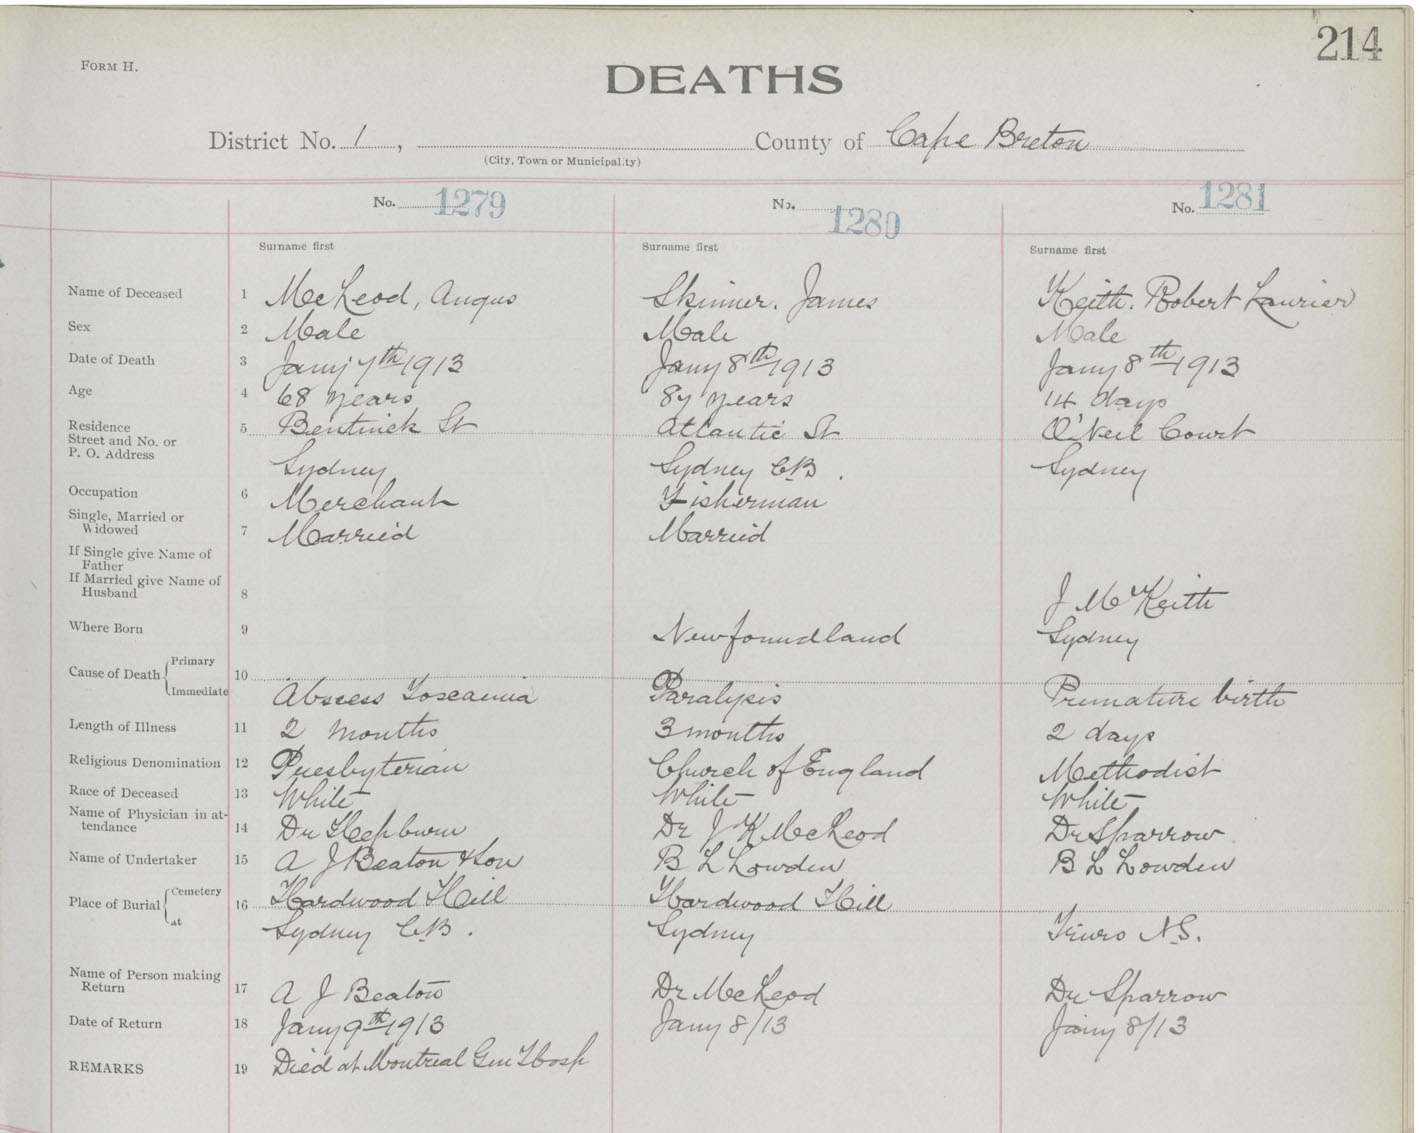 214
FORM H.
DEATHS
District No. 1, County of Cape Breton
(City, Town or Municipality)
No. 1279 No. 1280 No. 1281
Surname first Surname first Surname first
Name of Deceased 1 McLeod, Angus Skinner. James Keith. Robert Laurier
Sex 2 Male Male Male
Date of Death 3 Jany 7th 1913 Jany 8th 1913 Jany 8th 1913
Age 4 68 years 87 years 14 days
Residence 5 Bentinck St Atlantic St O'Neil Court
Street and No. or
P. O. Address Sydney Sydney C.B. Sydney
Occupation 6 Merchant Fisherman
Single, Married or
Widowed 7 Married Married
If Single give Name of
Father
If Married give Name of
Husband 8 J Mc Keith
Where Born 9 Newfoundland Sydney
Cause of Death Primary 10
Immediate Abscess Paralysis Premature birth
Length of Illness 11 2 months 3 months 2 days
Religious Denomination 12 Presbyterian Church of England Methodist
Race of Deceased 13 White White White
Name of Physician in at-
tendance 14 Dr Hepburn Dr J K McLeod Dr Sparrow
Name of Undertaker 15 A J Beaton & Son B L Lowden B L Lowden
Place of Burial Cemetery 16 Hardwood Hill Hardwood Hill
at Sydney C.B. Sydney Truro N.S.
Name of Person making
Return 17 A J Beaton Dr McLeod Dr Sparrow
Date of Return 18 Jany 9th 1913 Jany 8/13 Jany 8/13
REMARKS 19 Died at Montreal Gen Hosp